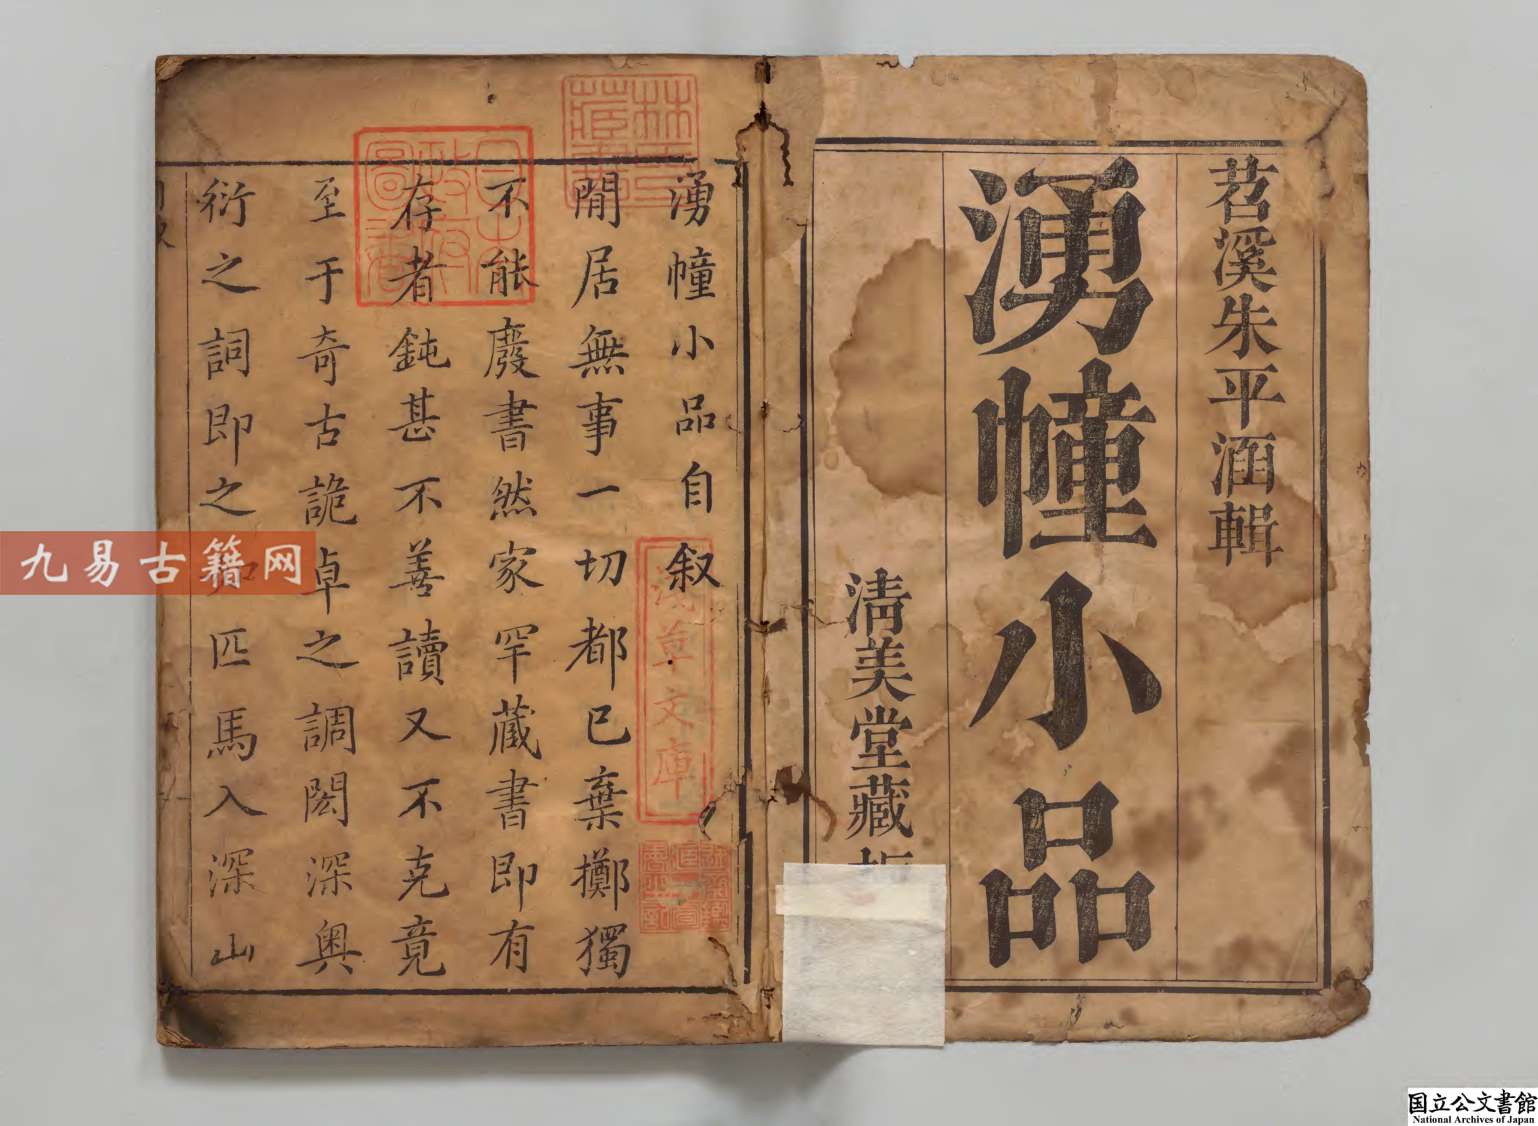 苕溪朱平涵輯
湧幢小品
清美堂藏
湧幢小品自叙
閒居無事一切都已棄擲獨
不能廢書然家罕藏書即有
存者鈍甚不善讀又不克竟
至于奇古詭卓之調閎深奥
衍之詞即之如匹馬入深山
淺草文庫
林氏藏書
日本政府圖書
九易古籍网
国立公文書館
National Archives of Japan